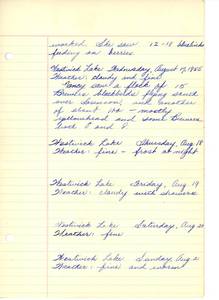 worked. She saw 12-18 Waxwings
feeding on berries.
Westwick Lake Wednesday, August 17, 1955
Weather: cloudy and fine
Nancy saw a flock of 15
Brewer's blackbirds flying south
over Sorenson, and another
of about 100 - mostly
Yellowhead and some Brewers
both ♂ and ♀.
Westwick Lake Thursday, Aug 18
Weather: fine - frost at night
Westwick Lake Friday, Aug 19
Weather: cloudy with showers
Westwick Lake Saturday, Aug 20
Weather: fine
Westwick Lake Sunday, Aug 21
Weather: fine and warm